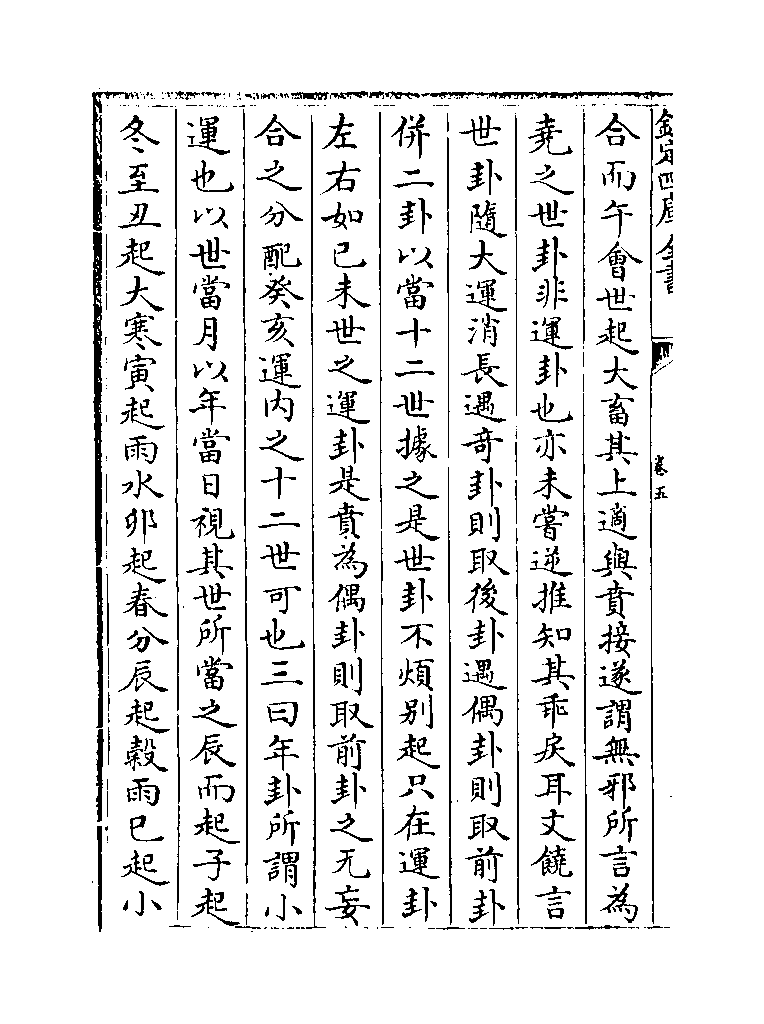 欽定四庫全書
卷五
合而午會世起大畜其上適與賁接遂謂無邪所言為
堯之世卦非運卦也亦未嘗逆推知其乖戾耳文饒言
世卦隨大運消長遇竒卦則取後卦遇偶卦則取前卦
併二卦以當十二世據之是世卦不煩别起只在運卦
左右如已未世之運卦是賁為偶卦則取前卦之无妄
合之分配癸亥運内之十二世可也三曰年卦所謂小
運也以世當月以年當日視其世所當之辰而起子起
冬至丑起大寒寅起雨水卯起春分辰起榖雨巳起小